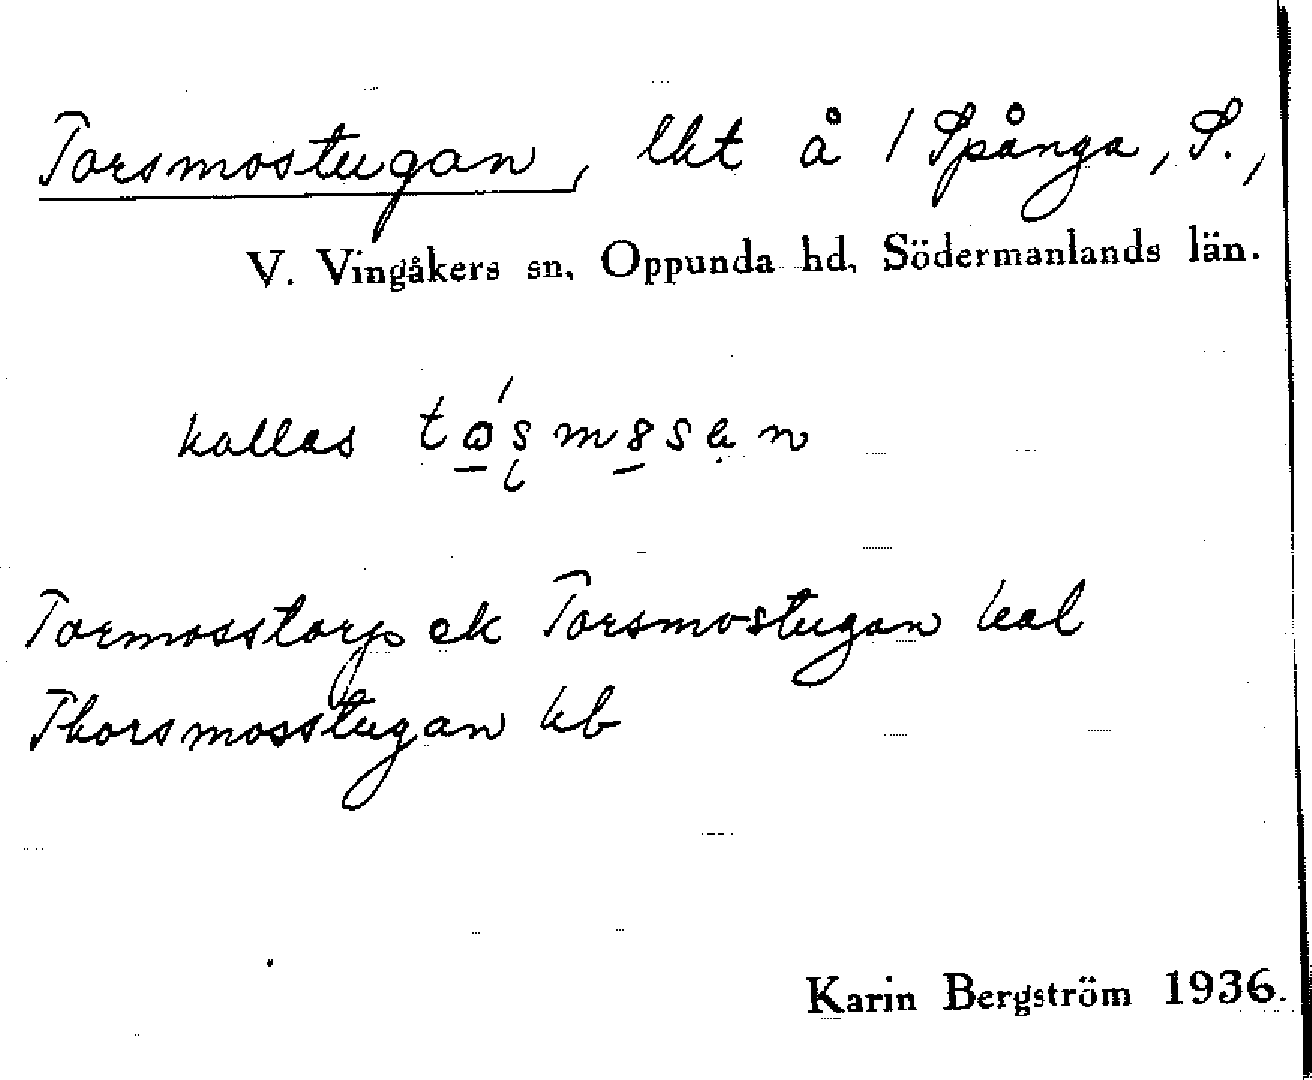 Torsmostugan, lht å 1 Spånga, S.,
V. Vingåkers sn, Oppunda hd, Södermanlands län.
kallas
Tormosstorp ek Torsmostugan hal
Thorsmosstugan hb
Karin Bergström 1936.